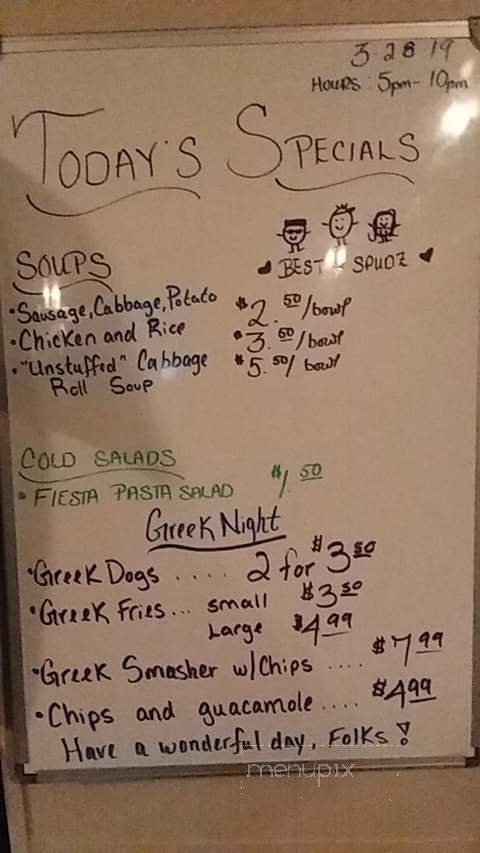 3-28-19
HOURS: 5pm-10pm
TODAY'S SPECIALS
BEST SPUDZ
SOUPS
•Sausage, Cabbage, Potato $2.50/bowl
•Chicken and Rice $3.50/bowl
•"Unstuffed" Cabbage $5.50/bowl
Roll Soup
COLD SALADS
• FIESTA PASTA SALAD $1.50
Greek Night
•Greek Dogs .... 2 for $3.50
•Greek Fries... small $3.50
Large $4.99
•Greek Smasher w/Chips .... $7.99
•Chips and guacamole.... $4.99
Have a wonderful day, Folks!
menupix